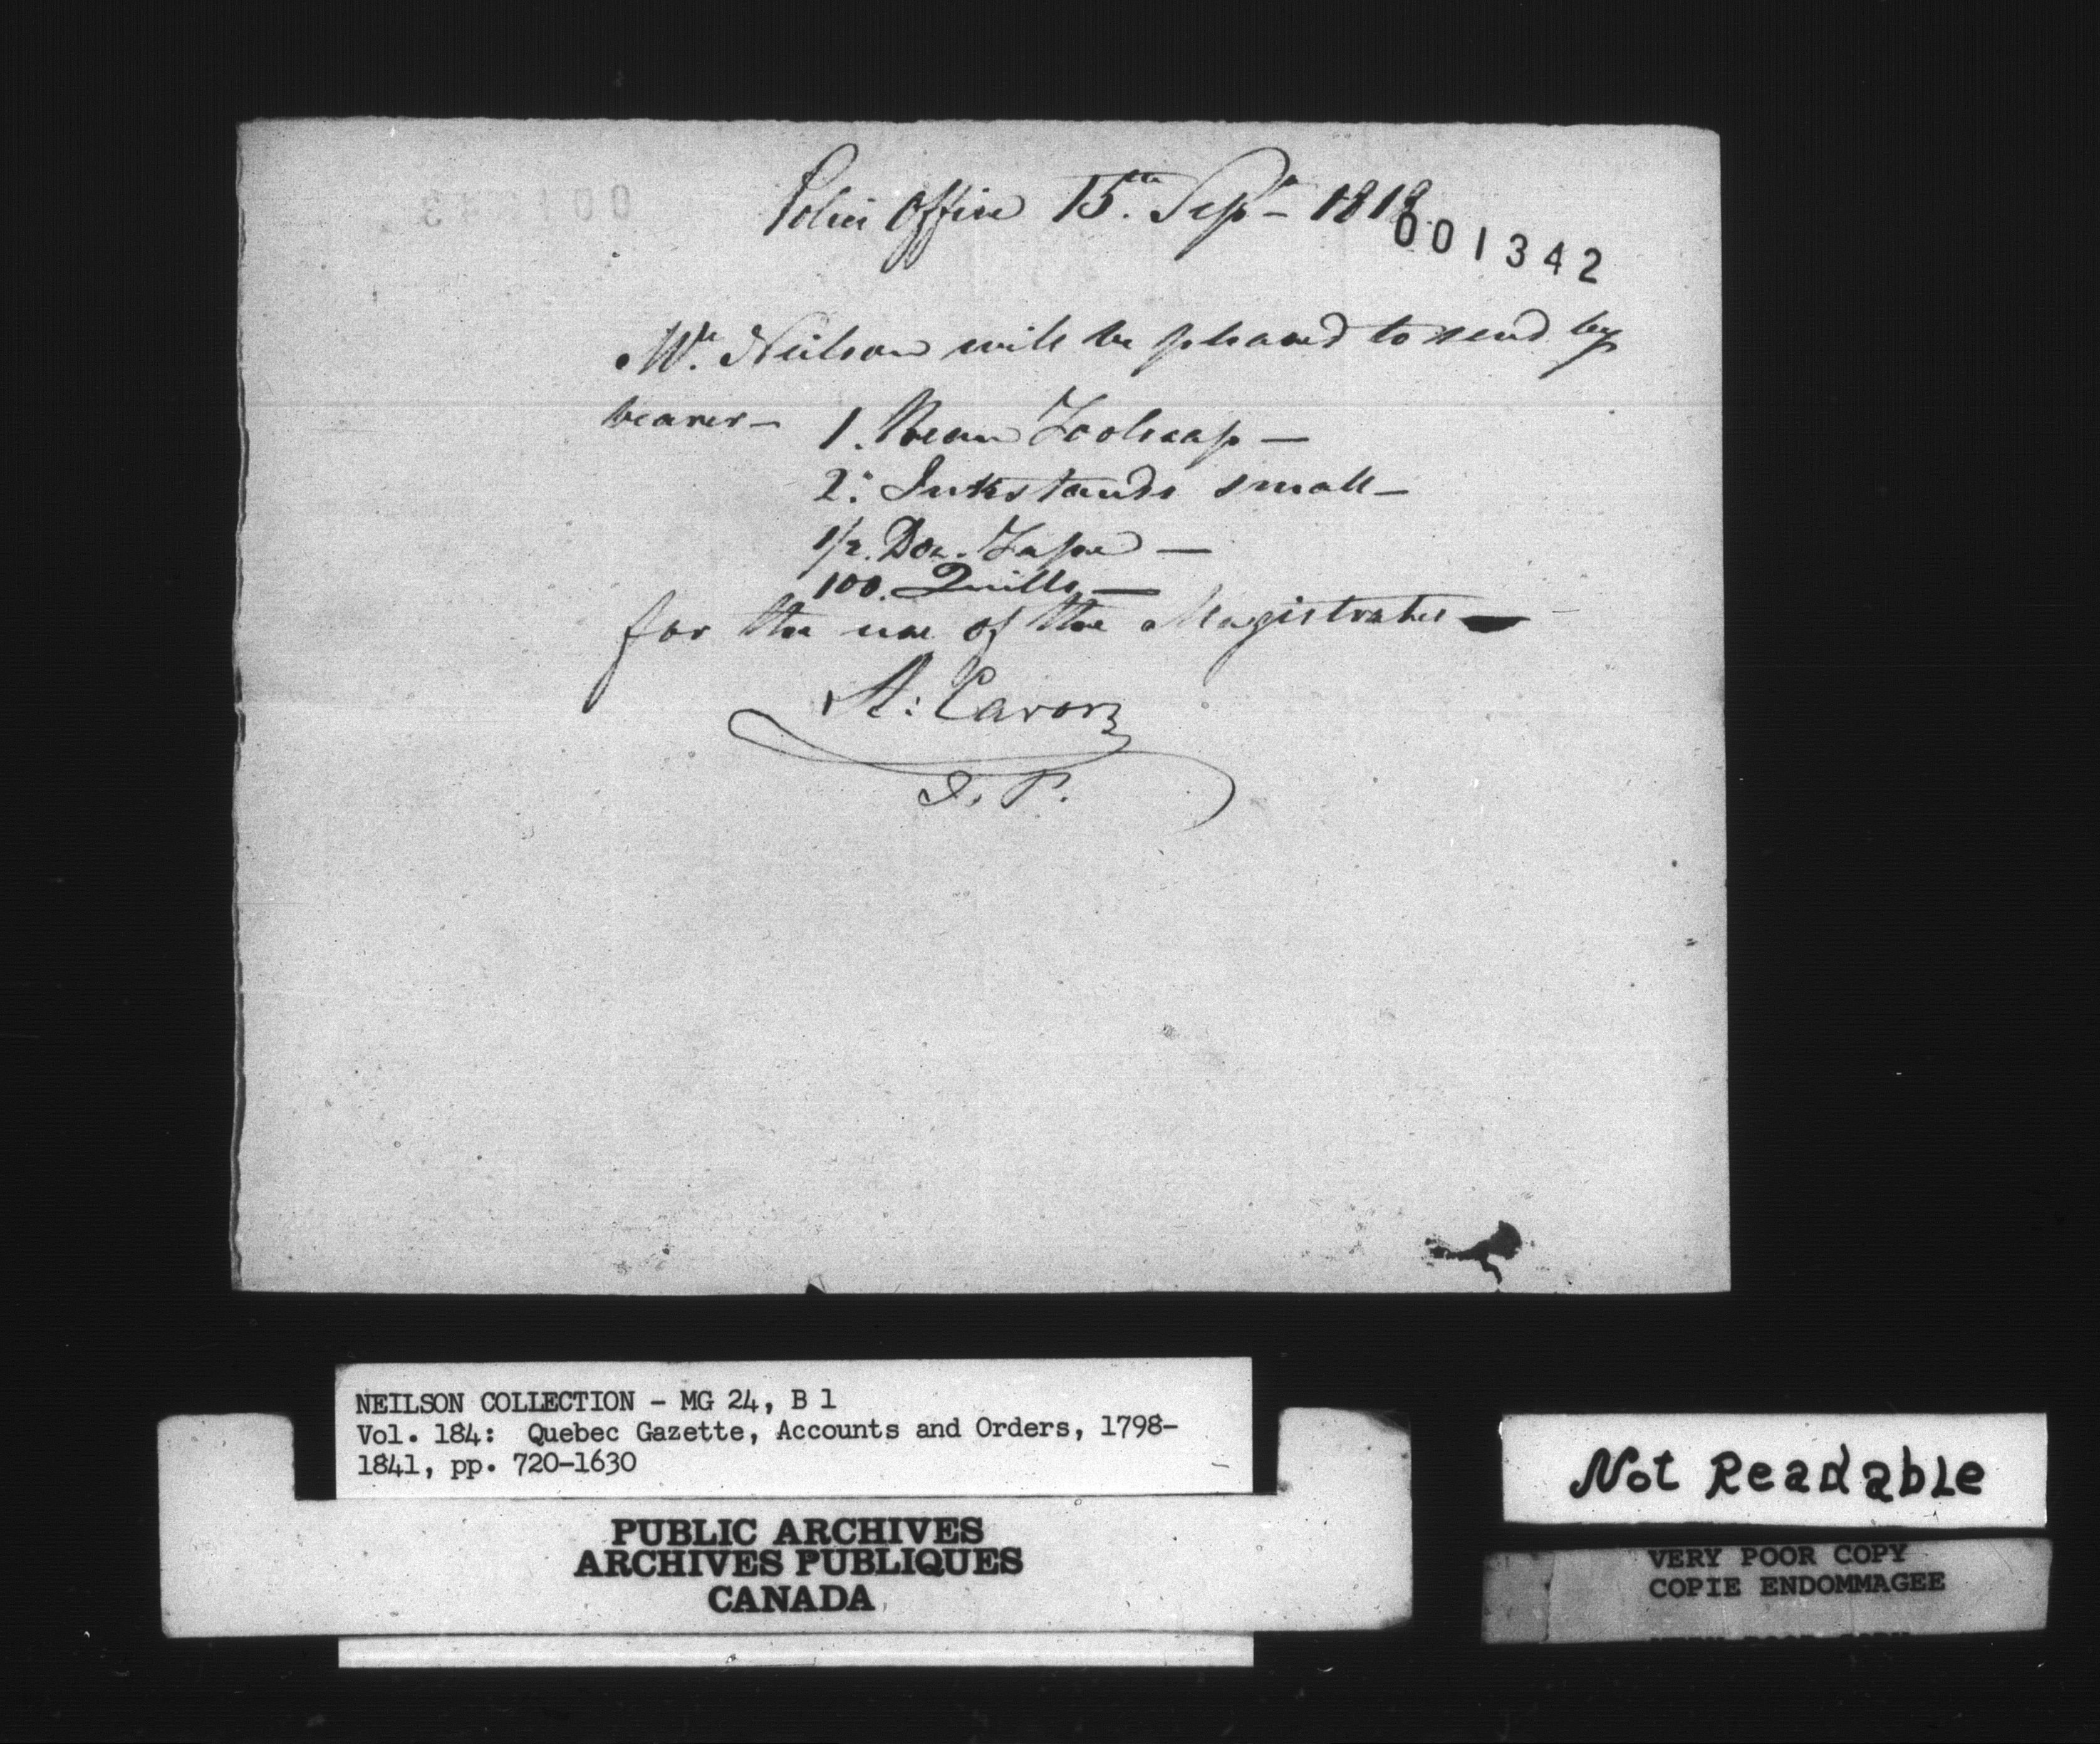 Police Office 15th. Sept - 1818
001342
Mr. Neilson will be pleased to send by
bearer - 1. Ream Foolscap -
2: Inkstands small -
1/2. Doz. Tape -
100. Quills -
for the use of the Magistrates -
A: Caron
J. P.
NEILSON COLLECTION - MG 24, B 1
Vol. 184: Quebec Gazette, Accounts and Orders, 1798-
1841, pp. 720-1630
PUBLIC ARCHIVES
ARCHIVES PUBLIQUES
CANADA
Not Readable
VERY POOR COPY
COPIE ENDOMMAGEE